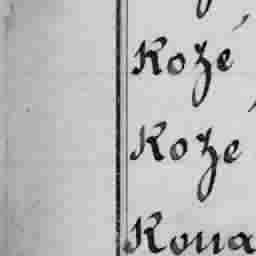 Kozé
Kozé
Koua